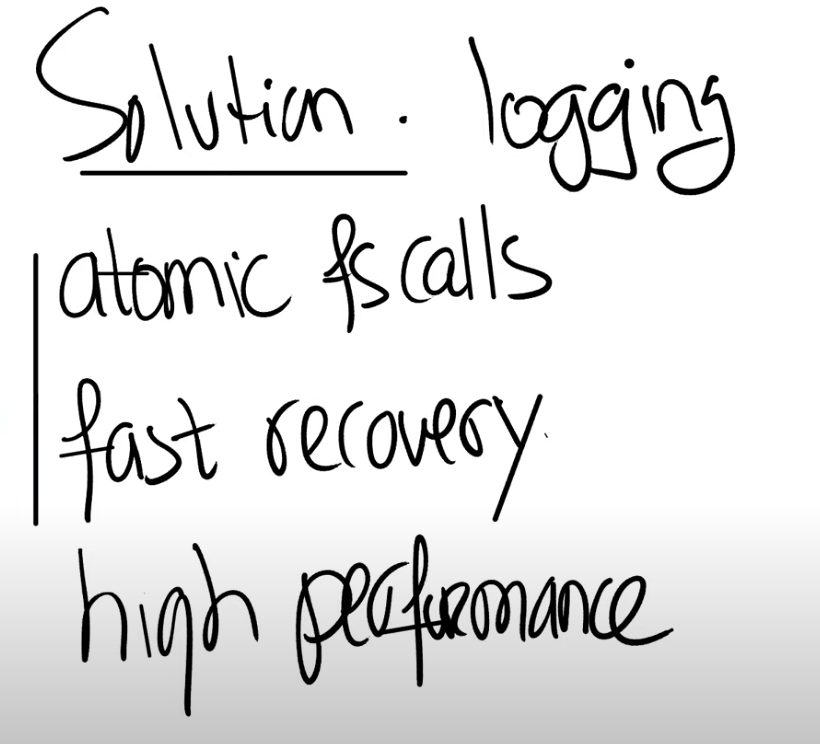 Solution. logging
atomic fs calls
fast recovery
high performance